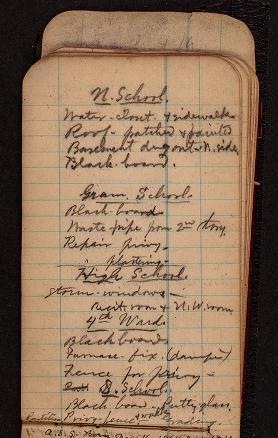 N. School.
Water-closet & sidewalks
Roof - patched & painted
Basement dug out - N. side,
Black-board.
Gram. School.
Blackboard
Waste-pipe from 2nd story,
Repair privy.
" plastering -
High School.
Storm-windows -
recit. room & N.W. room
4th Ward.
Blackboards
Furnace-fix. (damper)
Fence for privy -
S. School.
Black board Putty glass,
Privy-fence Grading.